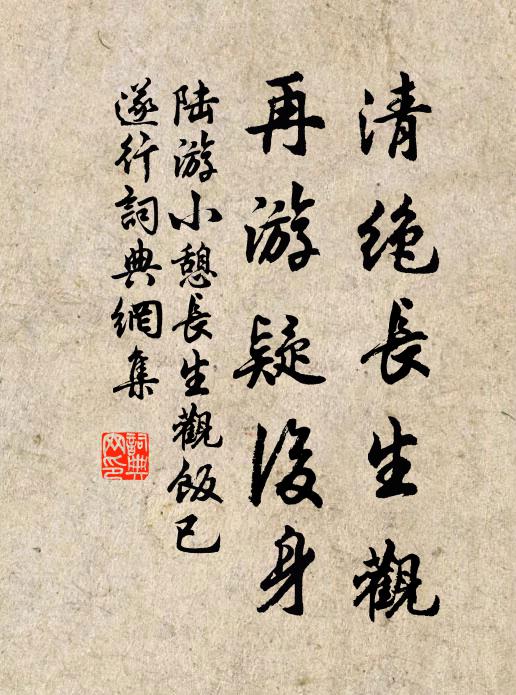 清絶長生觀
再游疑後身
陆游小憩長生觀飯已
遂行詞典網集
詞典
网印